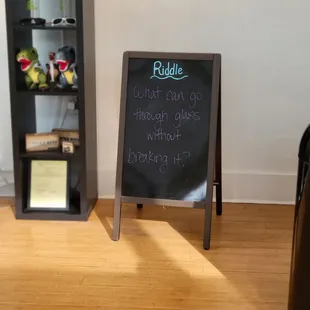 Riddle
What can go
through glass
without
breaking it?